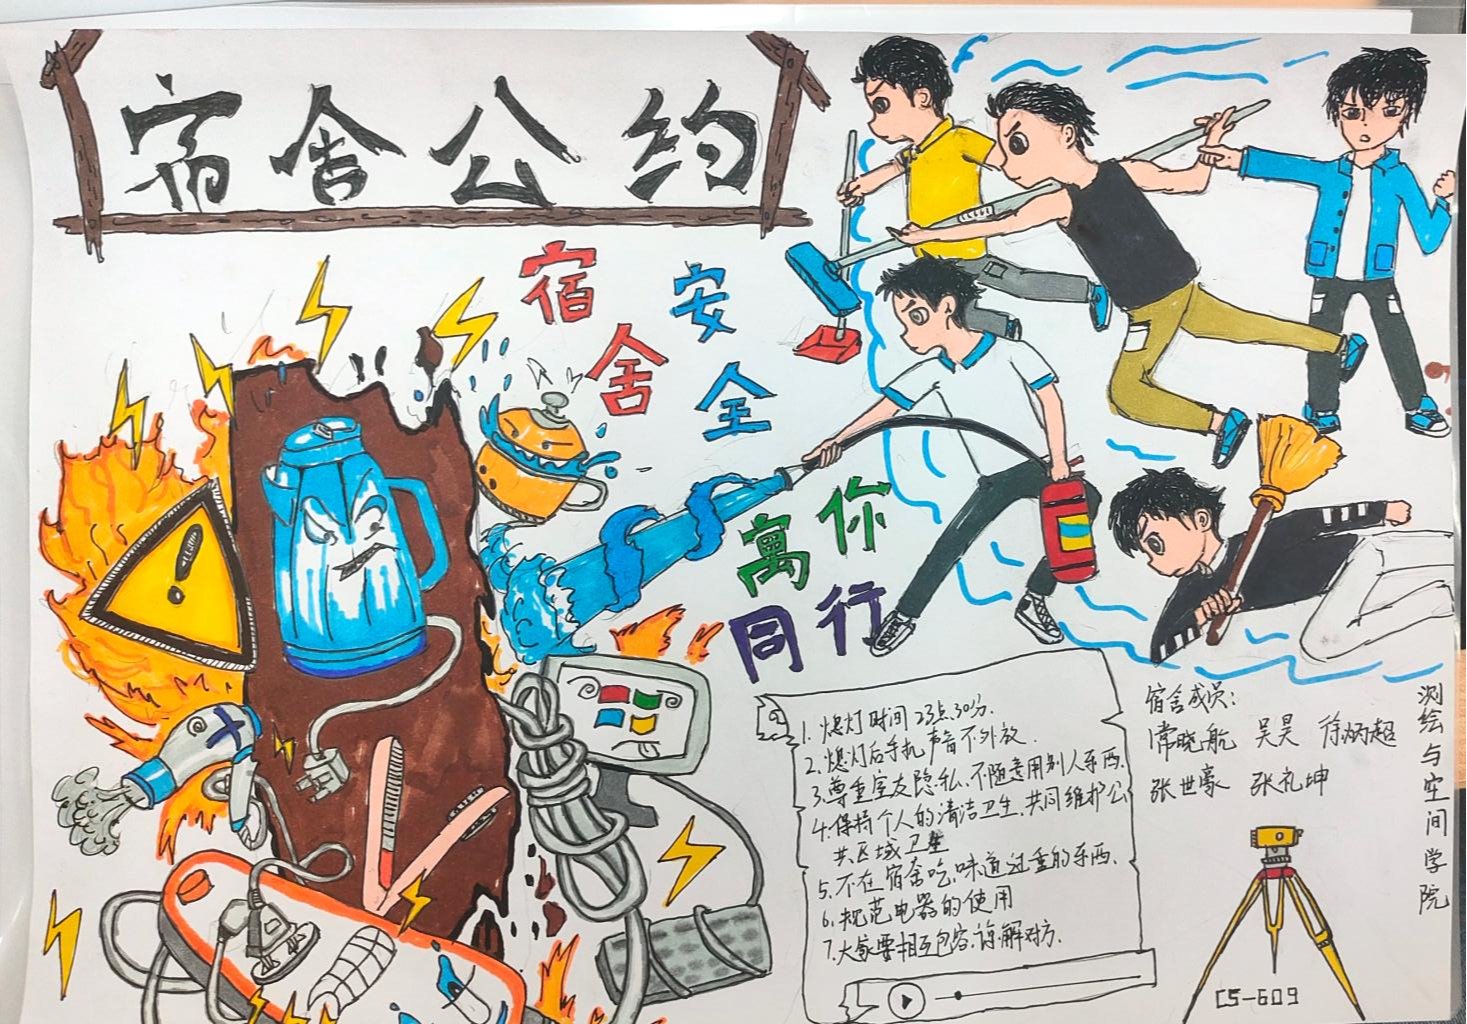 宿舍公约
宿舍
安全
寓你
同行
1.熄灯时间23点30分.
2.熄灯后手机声音不外放.
3.尊重室友隐私.不随意用别人东西.
4.保持个人的清洁卫生.共同维护公
共区域卫生
5.不在宿舍吃.味道过重的东西.
6.规范电器的使用
7.大家要相互包容.谅解对方.
宿舍成员:
常晓航 吴昊 徐炳超
张世豪 张礼坤
测绘与空间学院
CS-609